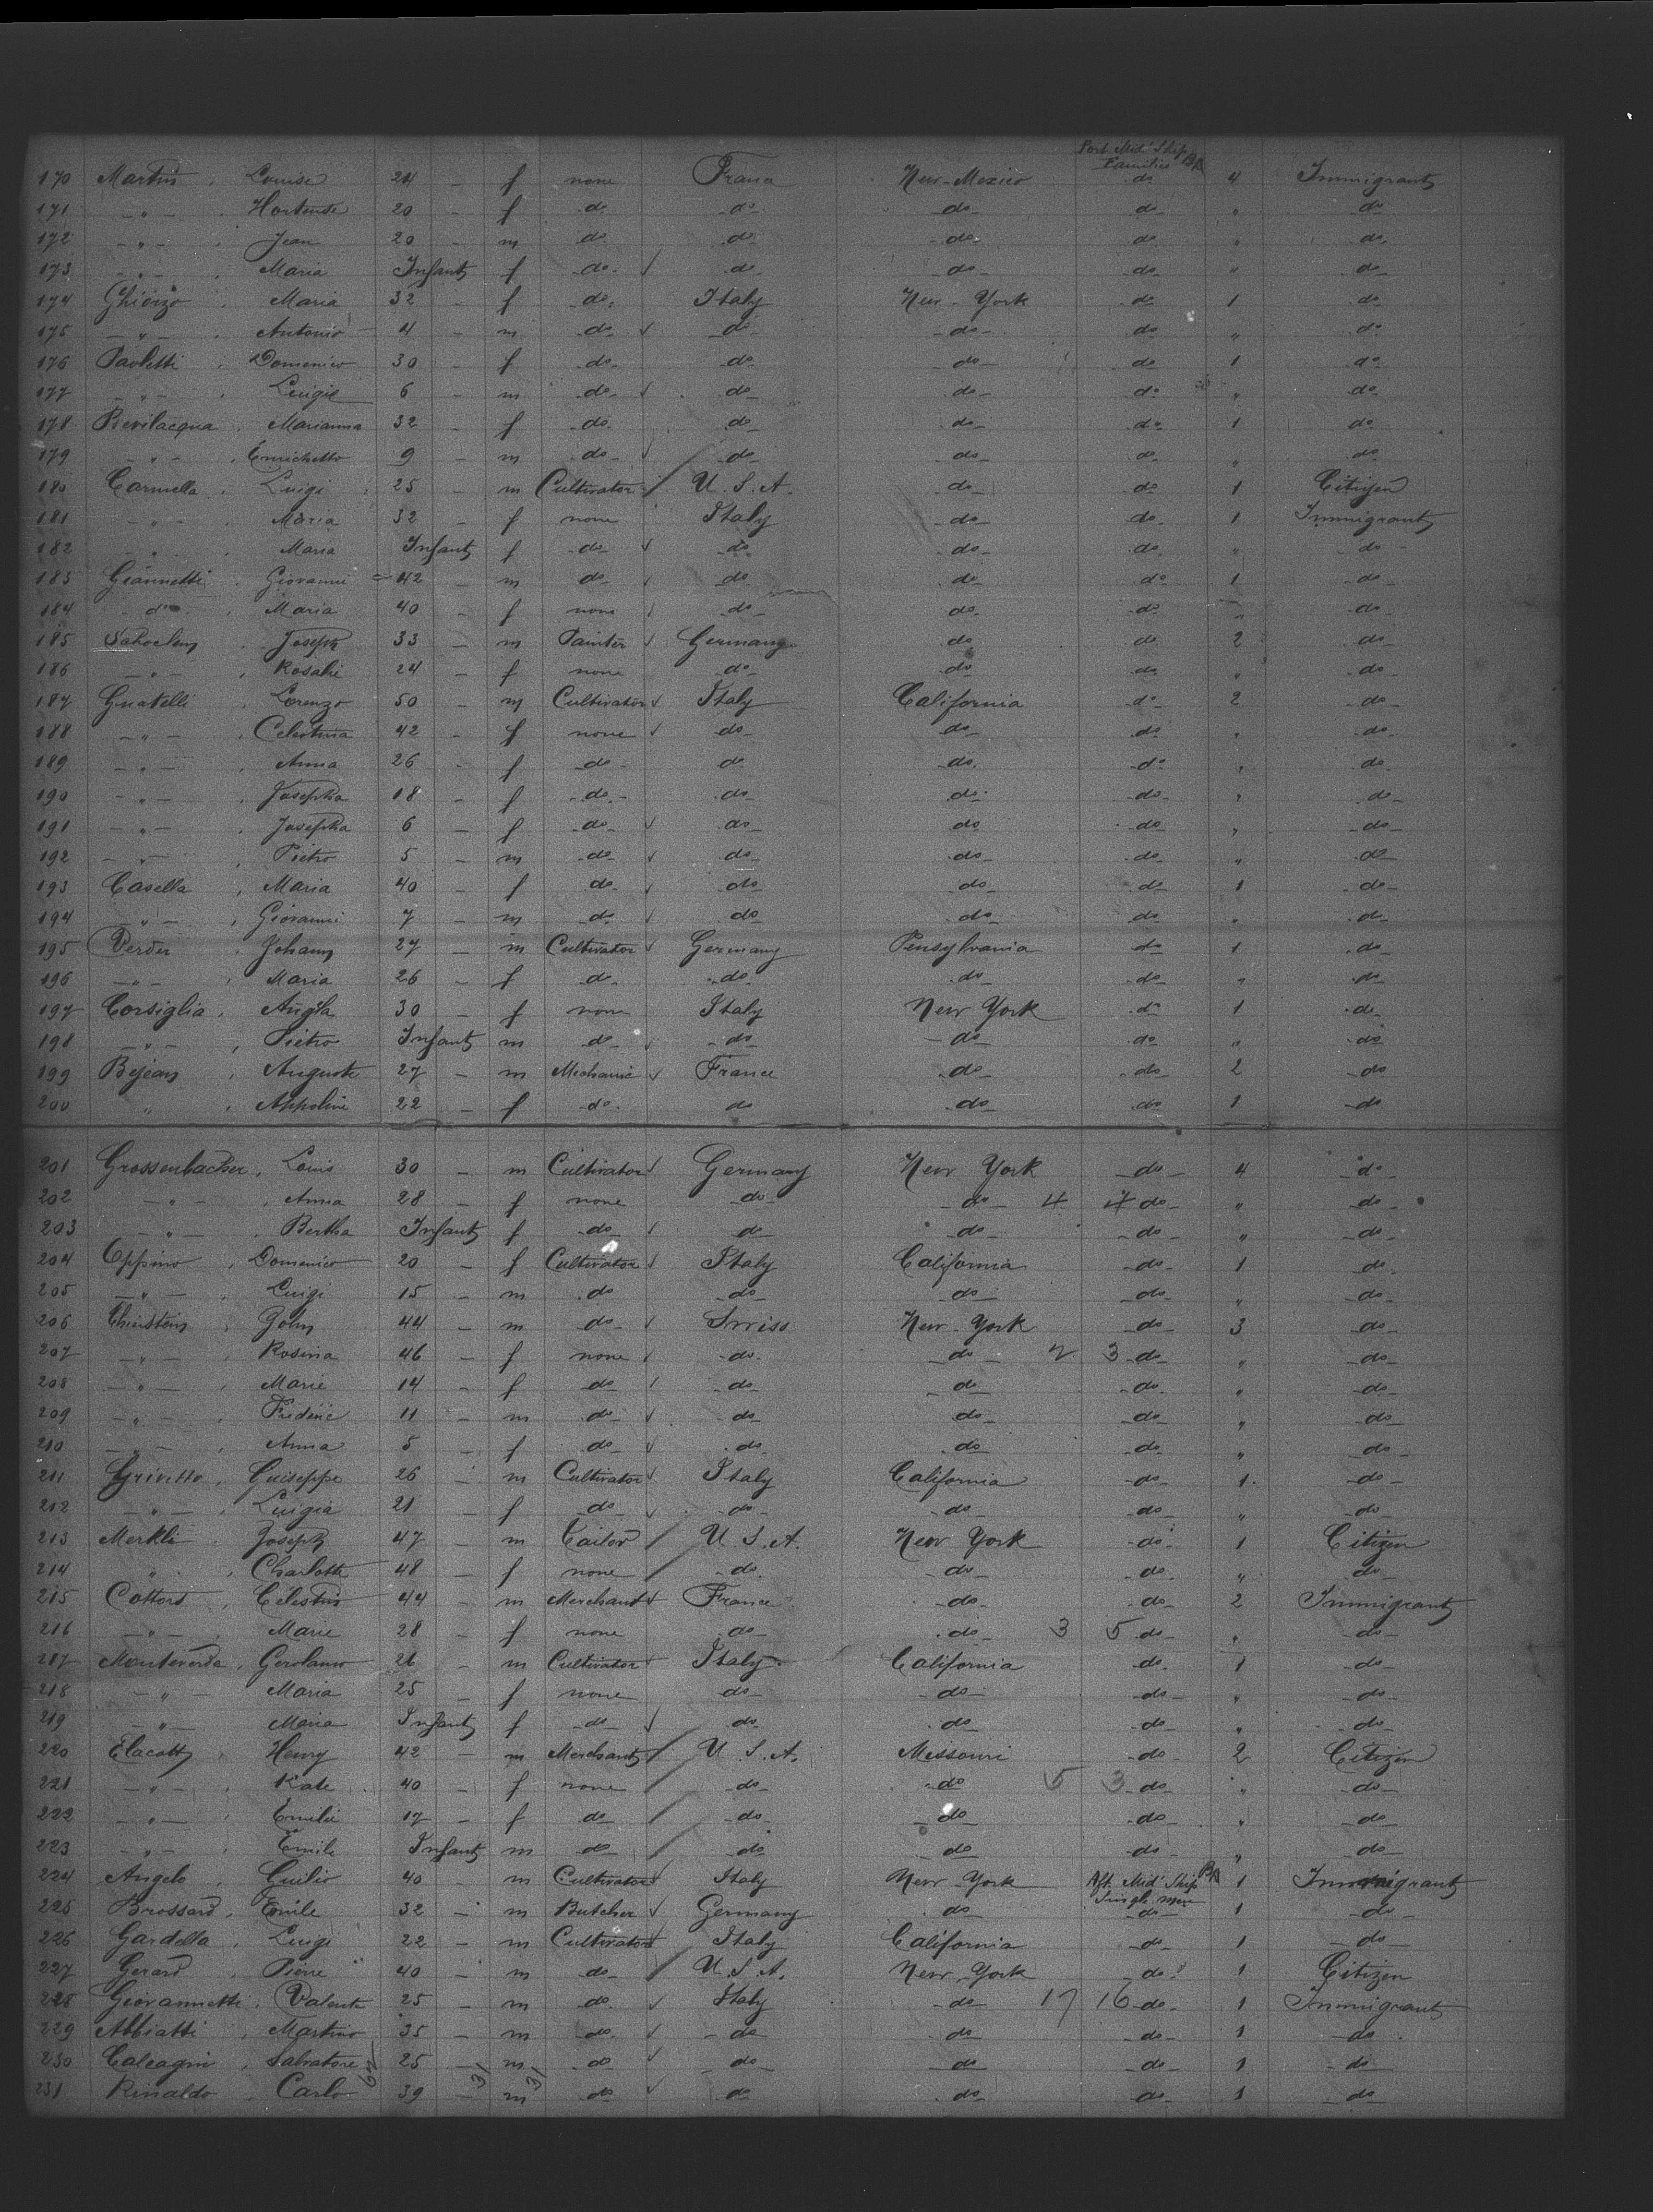 Port Mid Ship
Families
170 Martin, Louise 24 - f none France New-Mexico do 4 Immigrant
171 - " - , Hortense 20 - f do do do do " do
172 - " - , Jean 20 - m do do do do " do
173 - " - , Maria Infant f do do do do " do
174 Ghiorzo, Maria 32 - f do Italy New-York do 1 do
175 - " - , Antonio 4 - m do do do do " do
176 Paoletti, Domenico 30 - f do do do do 1 do
177 - " - , Luigi 6 - m do do do do " do
178 Bevilacqua, Marianna 32 - f do do do do 1 do
179 - " - , Enrichetto 9 - m do do do do " do
180 Carmella, Luigi 25 - m Cultivator U.S.A. do do 1 Citizen
181 - " - Maria 32 - f none Italy do do 1 Immigrant
182 - " - Maria Infant f do do do do " do
183 Giannetti, Giovanni 42 - m do do do do 1 do
184 do , Maria 40 - f none do do do " do
185 Joseph 33 - m Painter Germany do do 2 do
186 - " - , Rosalie 24 - f none do do do " do
187 Gnatelli Lorenzo 50 - m Cultivator Italy California do 2 do
188 - " - , Celestina 42 - f none do do do " do
189 - " - , Anna 26 - f do do do do " do
190 - " - , Josepha 18 - f do do do do " do
191 - " - , Josepha 6 - f do do do do " do
192 - " - , Pietro 5 - m do do do do " do
193 Casella, Maria 40 - f do do do do 1 do
194 - " - , Giovanni 7 - m do do do do " do
195 Perder, Johann 27 - m Cultivator Germany Pensylvania do 1 do
196 - " - , Maria 26 - f do do do do " do
197 Corsiglia, Angla 30 - f none Italy New York do 1 do
198 - " - , Pietro Infant m do do do do " do
199 Bejean, Auguste 27 - m Mechanic France do do 2 do
200 " , Appoline 22 - f do do do do 1 do
201 Grossenbacher, Louis 30 - m Cultivator Germany New York do 4 do
202 - " - , Anna 28 - f none do do 4 4 do " do
203 - " - , Bertha Infant f do do do do " do
204 Oppino, Domenico 20 - f Cultivator Italy California do 1 do
205 - " - , Luigi 15 - m do do do do " do
206 Thierstein, John 44 - m do Swiss New-York do 3 do
207 - " - , Rosina 46 - f none do do 2 3 do " do
208 - " - , Marie 14 - f do do do do " do
209 - " - , Frederic 11 - m do do do do " do
210 - " - , Anna 5 - f do do do do " do
211 Grivetto, Guiseppe 26 - m Cultivator Italy California do 1 do
212 - " - , Luigia 21 - f do do do do " do
213 Merkli, Joseph 47 - m Tailor U.S.A. New York do 1 Citizen
214 " , Charlotte 48 - f none do do do " do
215 Cottort, Celestin 44 - m Merchant France do do 2 Immigrant
216 - " - , Marie 28 - f none do do 3 5 do " do
217 Monteverda, Gerolamo 26 - m Cultivator Italy California do 1 do
218 - " - Maria 25 - f none do do do " do
219 - " - Maria Infant f do do do do " do
220 Elacott, Henry 42 - m Merchant U.S.A. Missouri do 2 Citizen
221 - " - , Kate 40 - f none do do 5 3 do " do
222 - " - , Emilie 17 - f do do do do " do
223 - " - , Emile Infant m do do do do " do
224 Angelo, Guilio 40 - m Cultivator Italy New York Aft. Mid Ship Single men 1 Immigrant
225 Brossard, Emile 32 - m Butcher Germany do do 1 do
226 Gardella, Luigi 22 - m Cultivator Italy California do 1 do
227 Gerard, Pierre 40 - m do U.S.A. New-York do 1 Citizen
228 Giovannetti, Valente 25 - m do Italy do 17 16 do 1 Immigrant
229 Abbiatti, Martino 35 - m do do do do 1 do
230 Calcagni, Salvatore 25 - m do do do do 1 do
231 Rinaldo, Carlo 62 39 - 31 m 31 do do do do 1 do